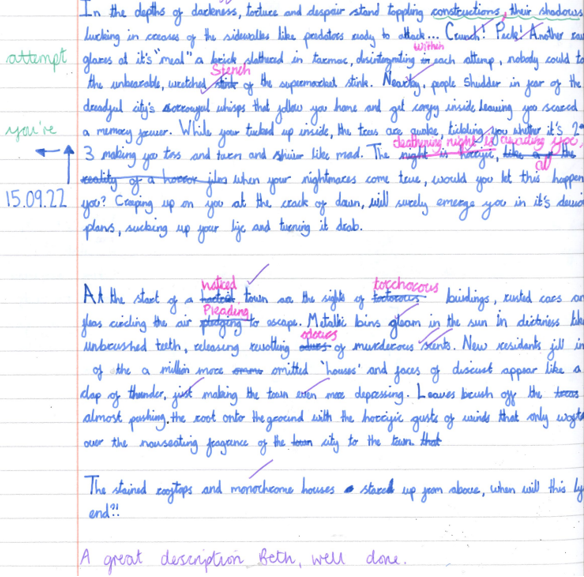 In the depths of darkness, torture and despair stand toppling constructions, their shadows
lurking in creases of the sidewalks like predators ready to attack... Crunch! Pick! Another
glares at it's "meal" a brick clothed in tarmac, disintegrating
within
in each attemp, nobody could
attempt
Stench
the unbearable, wretched stink of the supermarket stink. Nearby, people shudder in fear of the
city's whisps that follow you home and get inside leaving you scared
you're
a memory While your tucked up inside, the are quake, tickling you whether it's
deafening night is
3 making you toss and turn and shiver like mad. The night is horrific, like
of a horror film when your nightmares come true, would you let this happen
15.09.22
you? Creping up on you at the crack of dawn, will surely emerge you in it's
plans, sucking up your life and turning it drab.
hatred
torchorous
At the start of a town are the sights of buildings, rusted cars
Pleading
circling the air to escape. Metallic bins gleam in the sun in dirtiness
unbrushed teeth, releasing revolting of murderous scents. New residents fill in
of the a million more omitted 'houses' and faces of discust appear like a
clap of thunder, just making the town even more depressing. Leaves brush off the
almost pushing the root onto the ground with the horrific gusts of winds that only
over the nauseating fragrance of the town city to the town that
The stained rooftops and monochrome houses stared up from above, when will this
end?!
A great description Beth, well done.